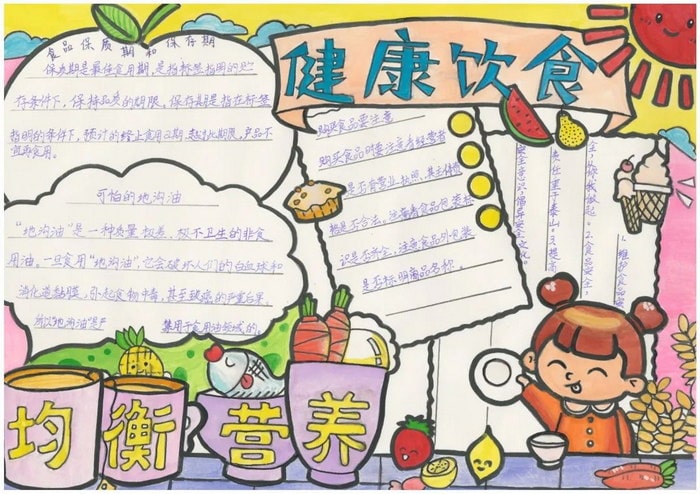 健康饮食
食品保质期和保存期
保质期是最佳食用期,是指标签指明的贮
存条件下,保持品质的期限。保存期是指在标签
指明的条件下,预计的终止食用日期,超过此期限,产品不
宜再食用。
可怕的地沟油
“地沟油”是一种质量极差、极不卫生的非食
用油。一旦食用“地沟油”,它会破坏人们的白血球和
消化道黏膜,引起食物中毒,甚至致癌的严重后果。
所以“地沟油”是严
禁用于食用油领域的。
购买食品要注意
购买食品时要注意看经营者
是否有营业执照,其主体资
格是否合法。注意看食品包装标
识是否齐全,注意食品外包装
是否标明商品名称
1.维护食品安
全,你我做起。2.食品安全,
责任重于泰山。3.提高
安全意识,倡导安全文化。
均衡营养